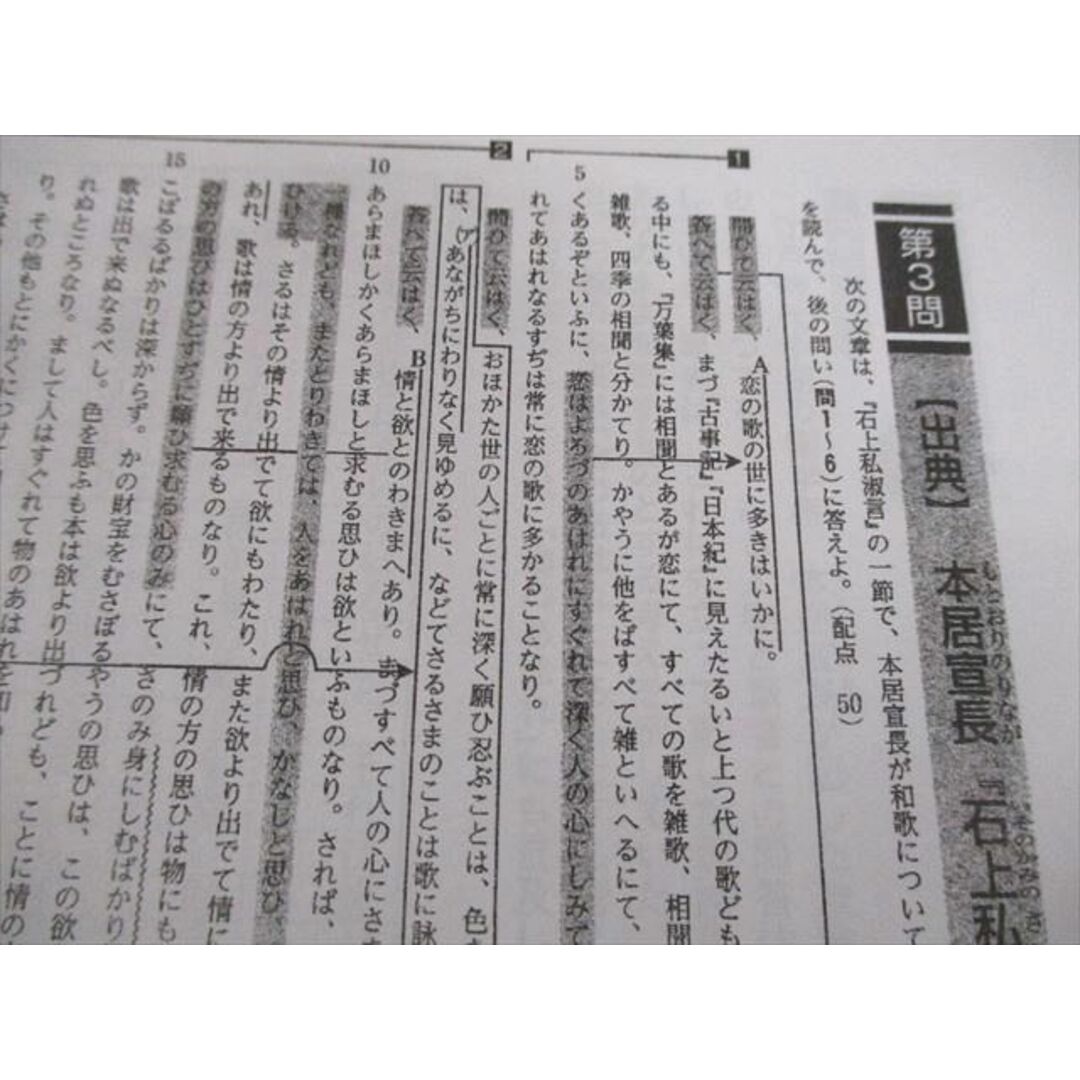 第3問
【出典】 本居宣長『石上私
もとおりのりなが
次の文章は、『石上私淑言』の一節で、本居宣長が和歌について
を読んで、後の問い(問1～6)に答えよ。(配点 50)
1
問ひて云はく、A恋の歌の世に多きはいかに。
答へて云はく、まづ『古事記』『日本紀』に見えたるいと上つ代の歌ども
る中にも、『万葉集』には相聞とあるが恋にて、すべての歌を雑歌、相聞
雑歌、四季の相聞と分かてり。かやうに他をばすべて雑といへるにて、
5
くあるぞといふに、恋はよろづのあはれにすぐれて深く人の心にしみて
れてあはれなるすぢは常に恋の歌に多かることなり。
2
問ひて云はく、おほかた世の人ごとに常に深く願ひ忍ぶことは、色
は、(ア)あながちにわりなく見ゆめるに、などてさるさまのことは歌に詠
答へて云はく、B情と欲とのわきまへあり。まづすべて人の心にさ
10
あらまほしかくあらまほしと求むる思ひは欲といふものなり。されば、
一種なれども、またとりわきては、人をあはれと思ひ、かなしと思ひ、
ひける。さるはその情より出でて欲にもわたり、また欲より出でて情に
あれ、歌は情の方より出で来るものなり。これ、情の方の思ひは物にも
の方の思ひはひとすぢに願ひ求むる心のみにて、さのみ身にしむばかり
15
こばるるばかりは深からず。かの財宝をむさぼるやうの思ひは、この欲
歌は出で来ぬなるべし。色を思ふも本は欲より出づれども、ことに情の
れぬところなり。まして人はすぐれて物のあはれを知
り。その他もとにかくにつけて